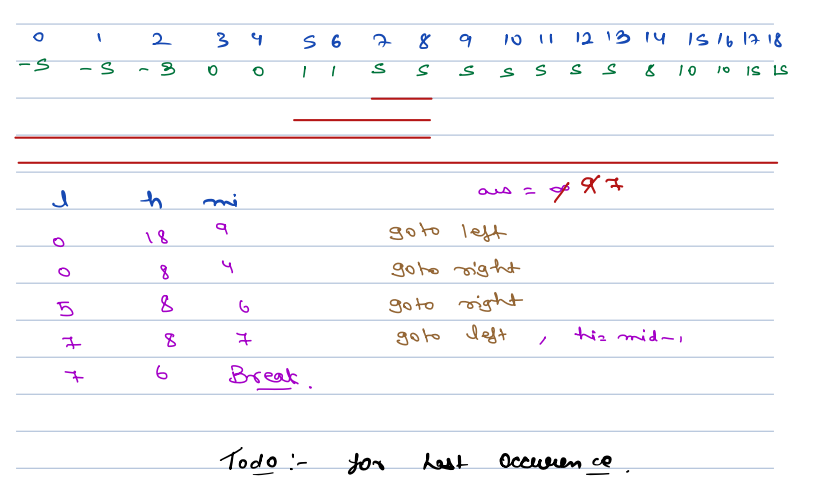 0 1 2 3 4 5 6 7 8 9 10 11 12 13 14 15 16 17 18
-5 -5 -3 0 0 1 1 5 5 5 5 5 5 5 8 10 10 15 15
l h mi ans = 9 7
0 18 9 goto left
0 8 4 goto right
5 8 6 goto right
7 8 7 goto left , hi= mid-1
7 6 Break.
Todo :- for last Occurence.